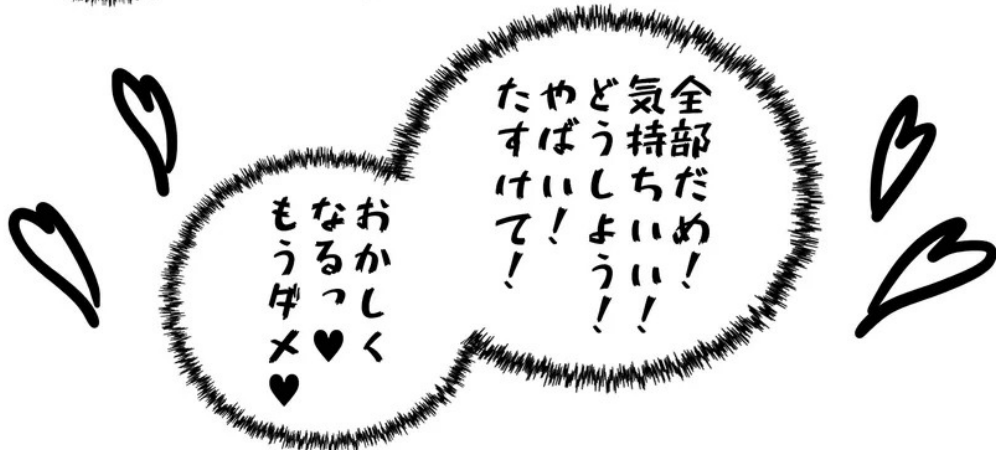 全部だめ！
気持ちいい！
どうしよう！
やばい！
たすけて！
おかしく
なるっ♥
もうダメ♥